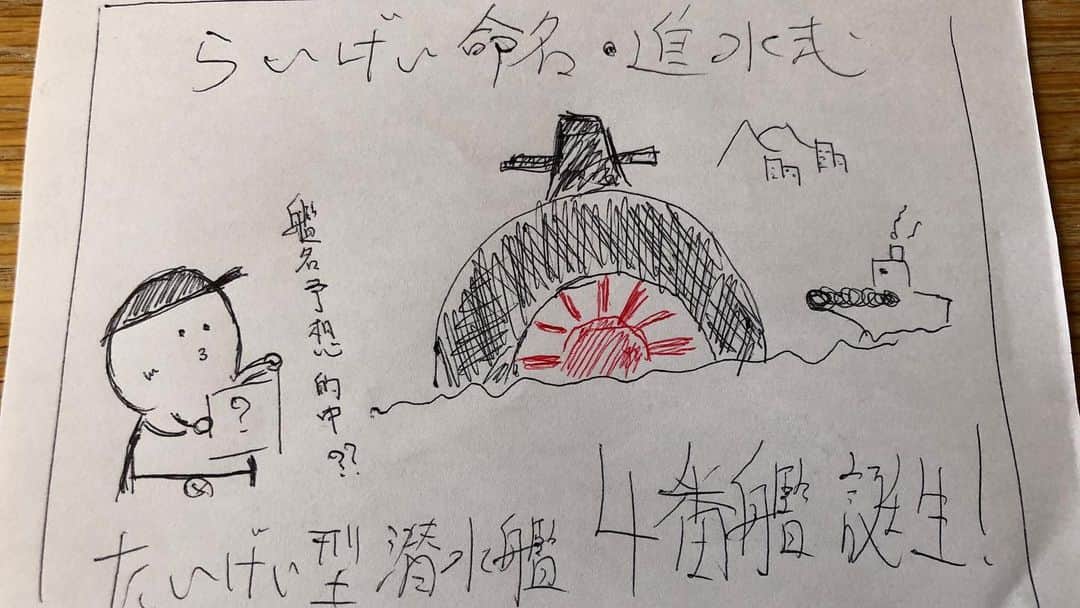 らいげい命名・進水式
艦名予想的中??
?
たいげい型潜水艦 4番艦誕生!